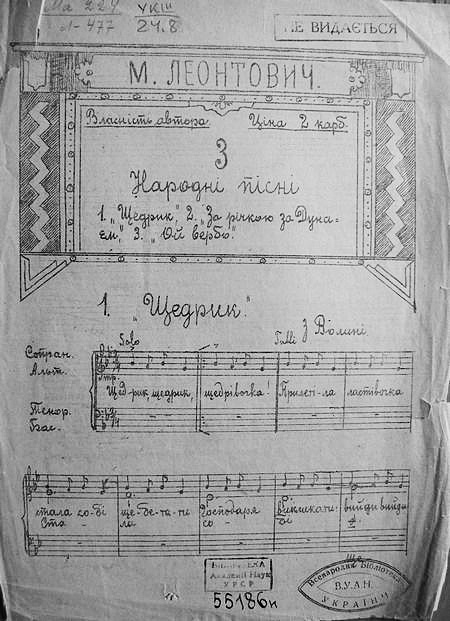 УКІІІ
477
24.8
НЕ ВИДАЄТЬСЯ
М. ЛЕОНТОВИЧ.
Власність автора. Ціна 2 карб.
3
Народні пісні
1. „Щедрик", 2. „За річкою за Дуна=
ем," 3. „Ой вербо".
1. „Щедрик."
З Волині
Solo Tutti
Сопран.
Альт.
Щед-рик щедрик, щедрівочка! Прилеті-ла ластівочка
Тенор.
Бас.
стала со-бі ще-бе-та-ти Господаря викликати: вийди вийди
Ста- ла со- бі
БІБЛІОТЕКА
Академії Наук
УРСР
55186н
Всенародня Бібліотека
В.У.А.Н.
УКРАЇНИ